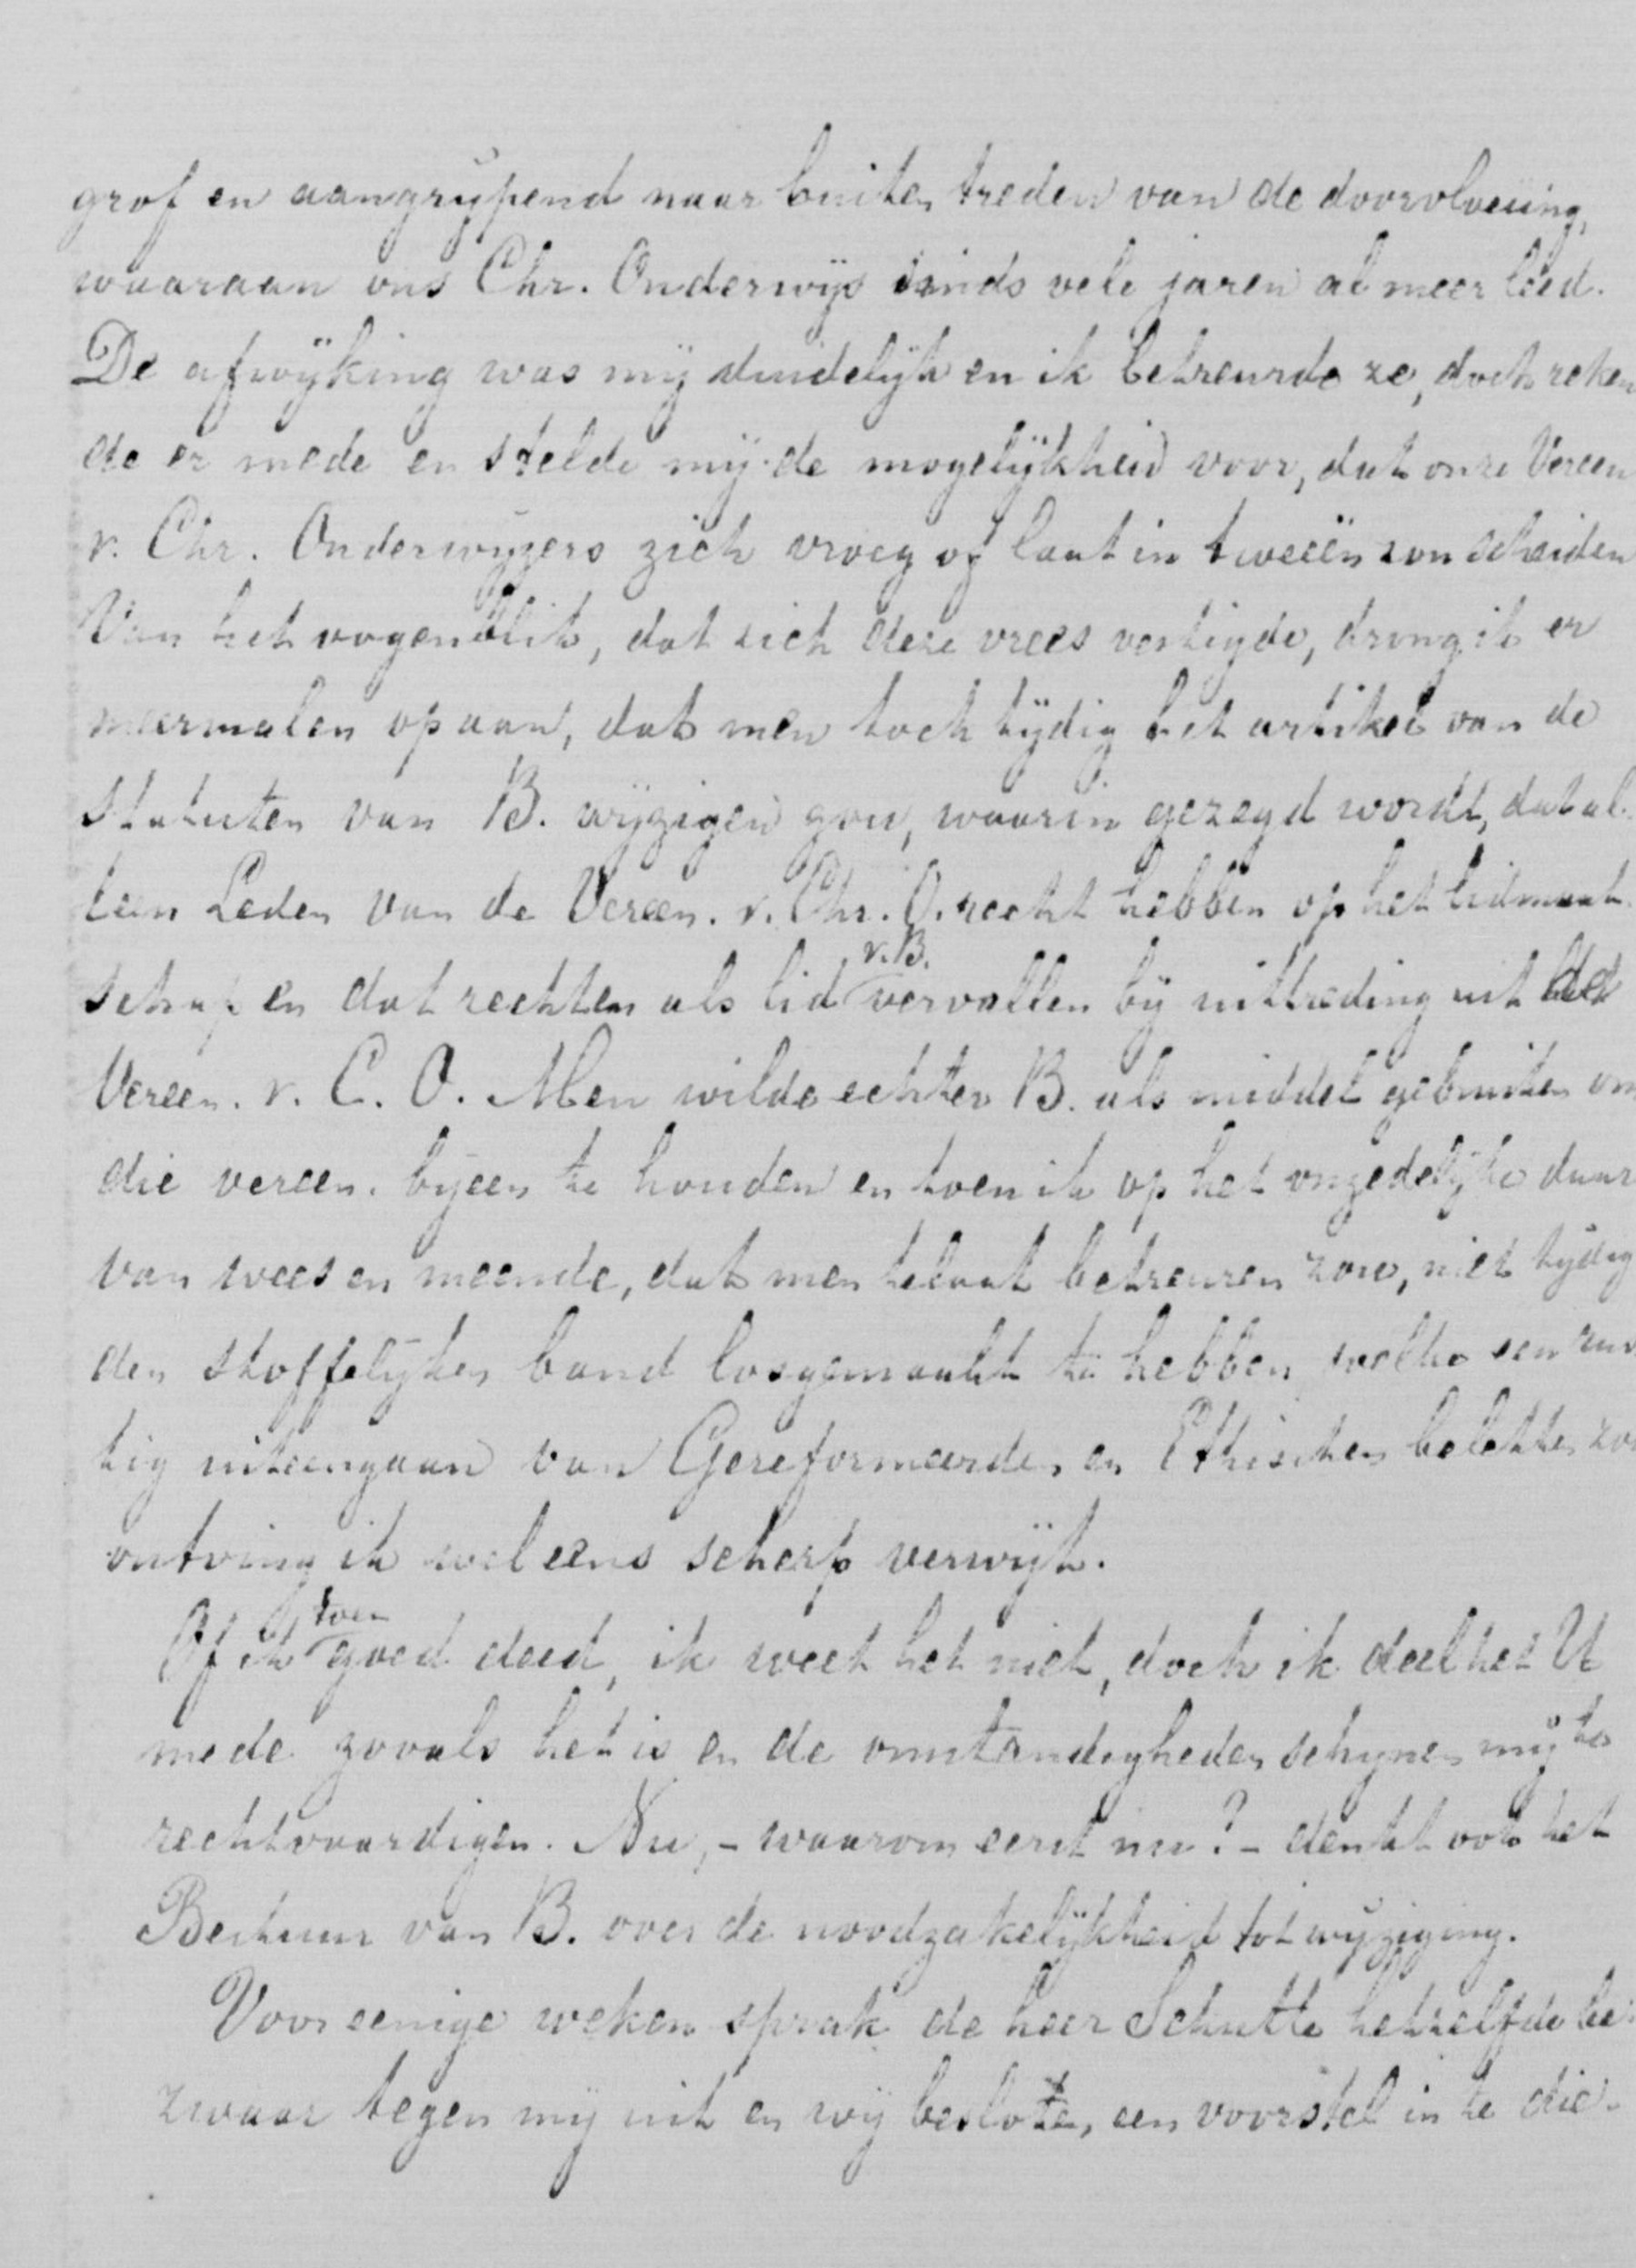 grof en aangrijpend naar buiten treden van de doorvloeiing,
waaraan ons Chr. Onderwijs sinds vele jaren al meer leed.
De afwijking was mij duidelijk en ik betreurde ze, doch reken
de er mede en stelde mij de mogelijkheid voor, dat onze Vereen
v. Chr. Onderwijzers zich vroeg of laat in tweeën zou scheiden
Van het oogenblik, dat zich deze vrees vestigde, drong ik er
meermalen op aan, dat men toch tijdig het artikel van de
Statuten van B. wijzigen zou, waarin gezegd wordt, dat al
leen Leden van de Vereen. v. Chr. O. recht hebben op het lidmaat
schap en dat rechten als lid v. B. vervallen bij uittreding uit de
Vereen. v. C. O. Men wilde echter B. als middel gebruiken om
die vereen. bijeen te houden en toen ik op het onzedelijke daar
van wees en meende, dat men telaat betreuren zou, niet tijdig
den stoffelijken band losgemaakt te hebben, welke een rus
tig uiteengaan van Gereformeerden en Ethischen beletten zou
ontving ik wel eens scherp verwijt.
Of ik toen goed deed, ik weet het niet, doch ik deel het U
mede zooals het is en de omstandigheden schijnen mij te
rechtvaardigen. Nu, - waarom eerst nu? - denkt ook het
Bestuur van B. over de noodzakelijkheid tot wijziging.
Voor eenige weken sprak de heer Schutte hetzelfde be
zwaar tegen mij uit en wij besloten, een voorstel in te die-